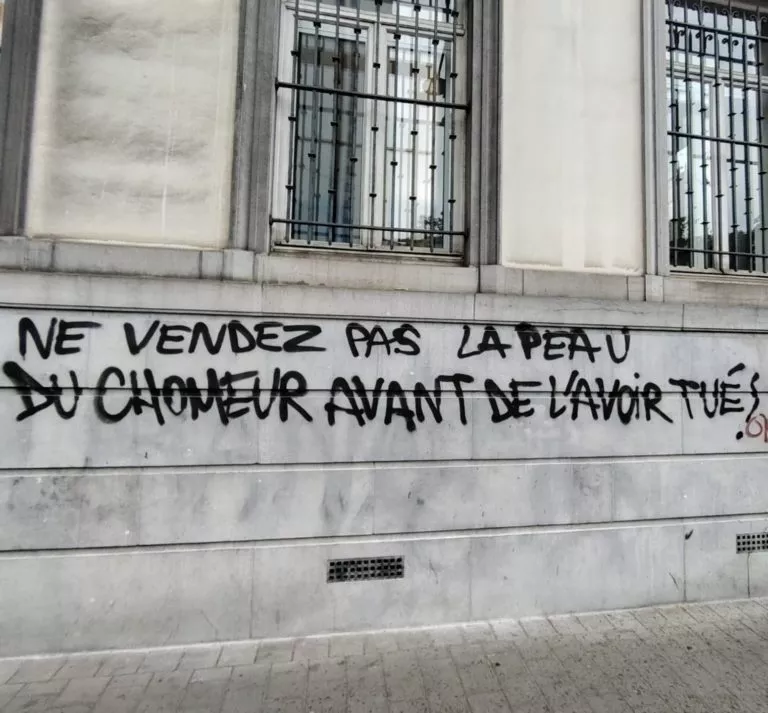 NE VENDEZ PAS LA PEAU
DU CHOMEUR AVANT DE L'AVOIR TUÉ